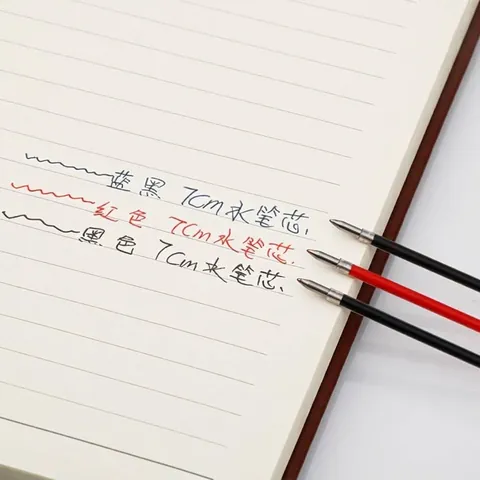 蓝黑 7cm水笔芯.
红色 7cm水笔芯.
黑色 7cm水笔芯.